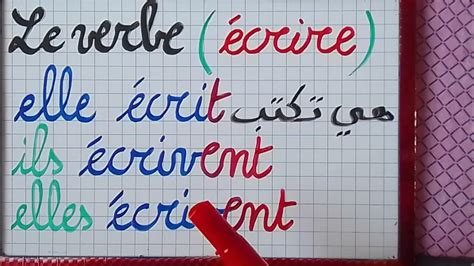 Le verbe (écrire)
elle écrit هي تكتب
ils écrivent
elles écrivent